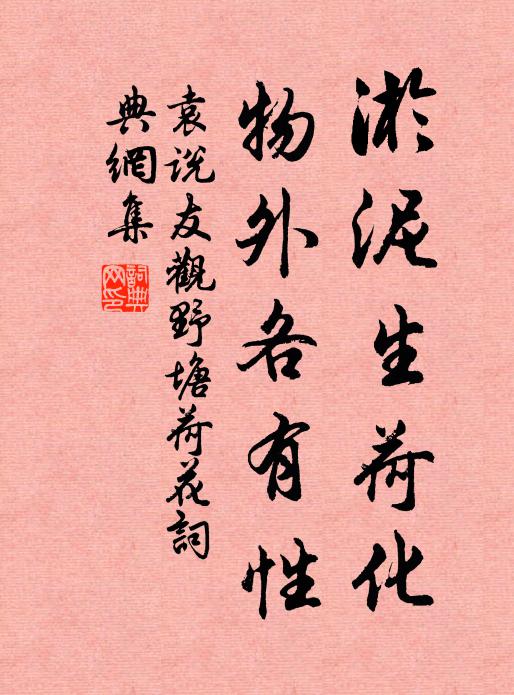 淤泥生荷化
物外各有性
袁说友觀野塘荷花詞
典網集
詞典
网印